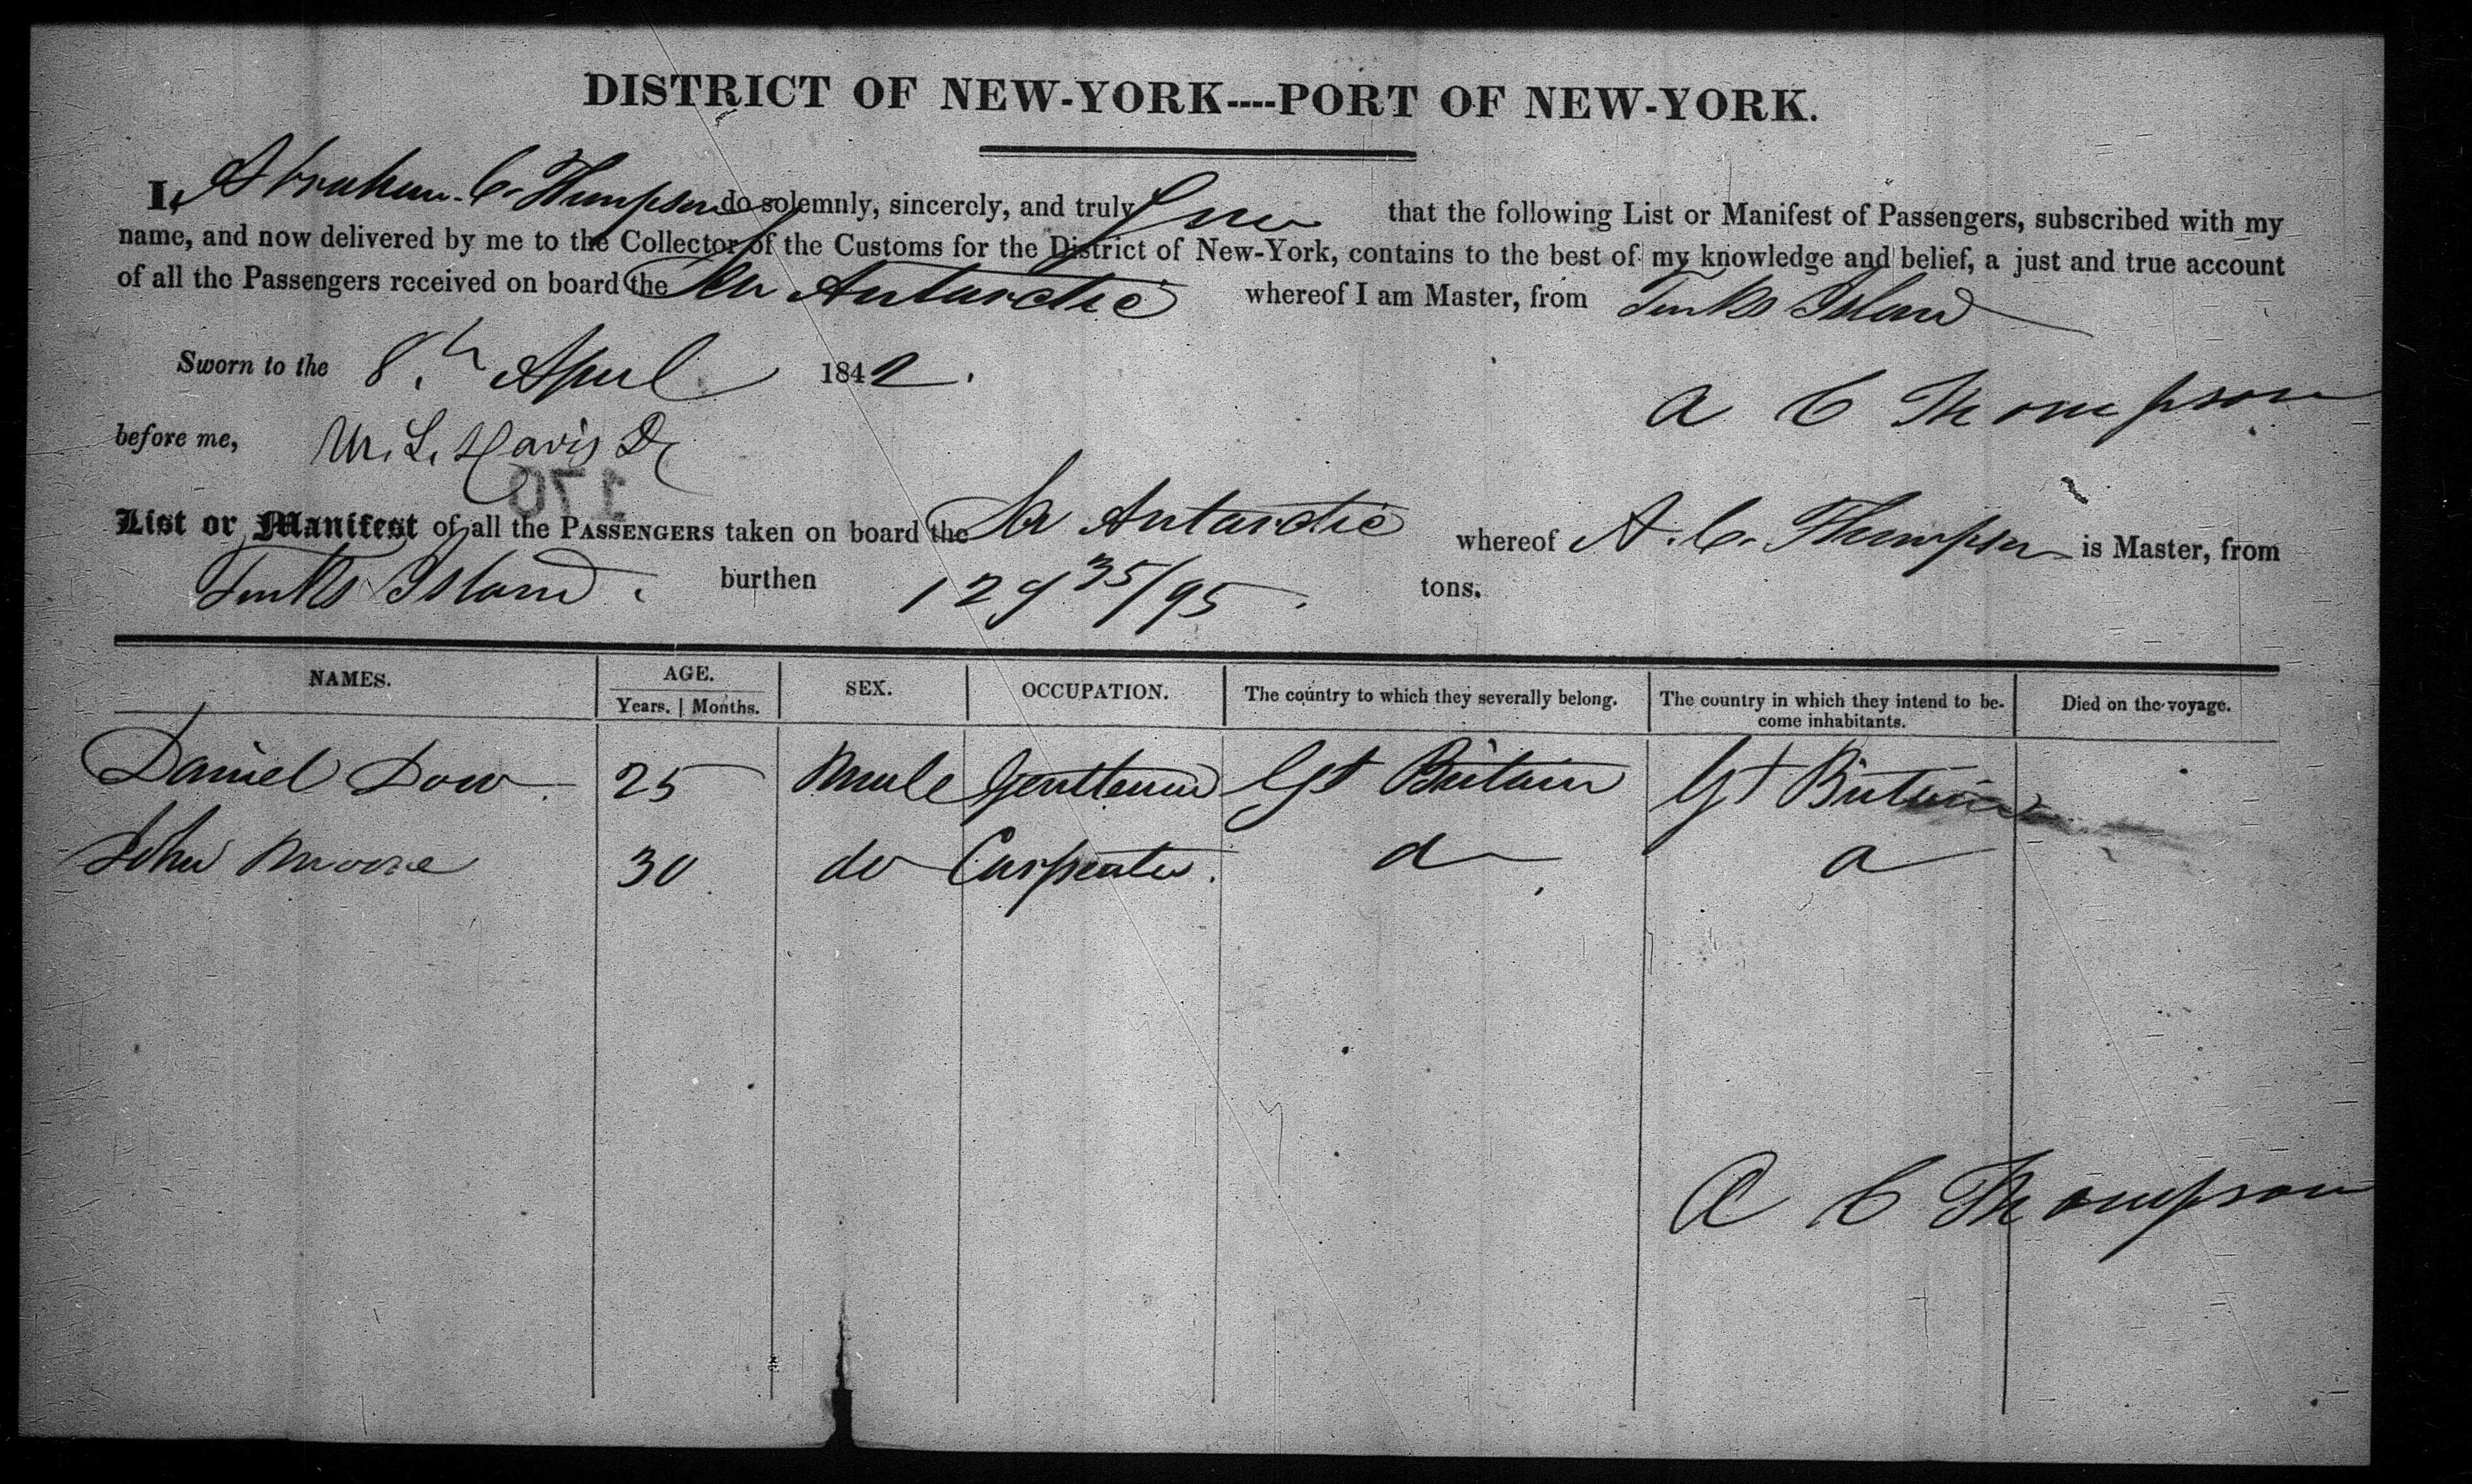 DISTRICT OF NEW-YORK----PORT OF NEW-YORK.
I, Abraham C. Thompson do solemnly, sincerely, and truly that the following List or Manifest of Passengers, subscribed with my
name, and now delivered by me to the Collector of the Customs for the District of New-York, contains to the best of my knowledge and belief, a just and true account
of all the Passengers received on board the Antarctic whereof I am Master, from Turks Island
Sworn to the 8th April 1842.
A C Thompson
before me,
170
List or Manifest of all the PASSENGERS taken on board the Antarctic whereof A. C. Thompson is Master, from
Turks Island. burthen 129 35/95. tons.
NAMES. AGE. Years. Months. SEX. OCCUPATION. The country to which they severally belong. The country in which they intend to be-come inhabitants. Died on the voyage.
Daniel Dow. 25 Male Gentleman Gt Britain Gt Britain
John Moore 30 do Carpenter.
A C Thompson